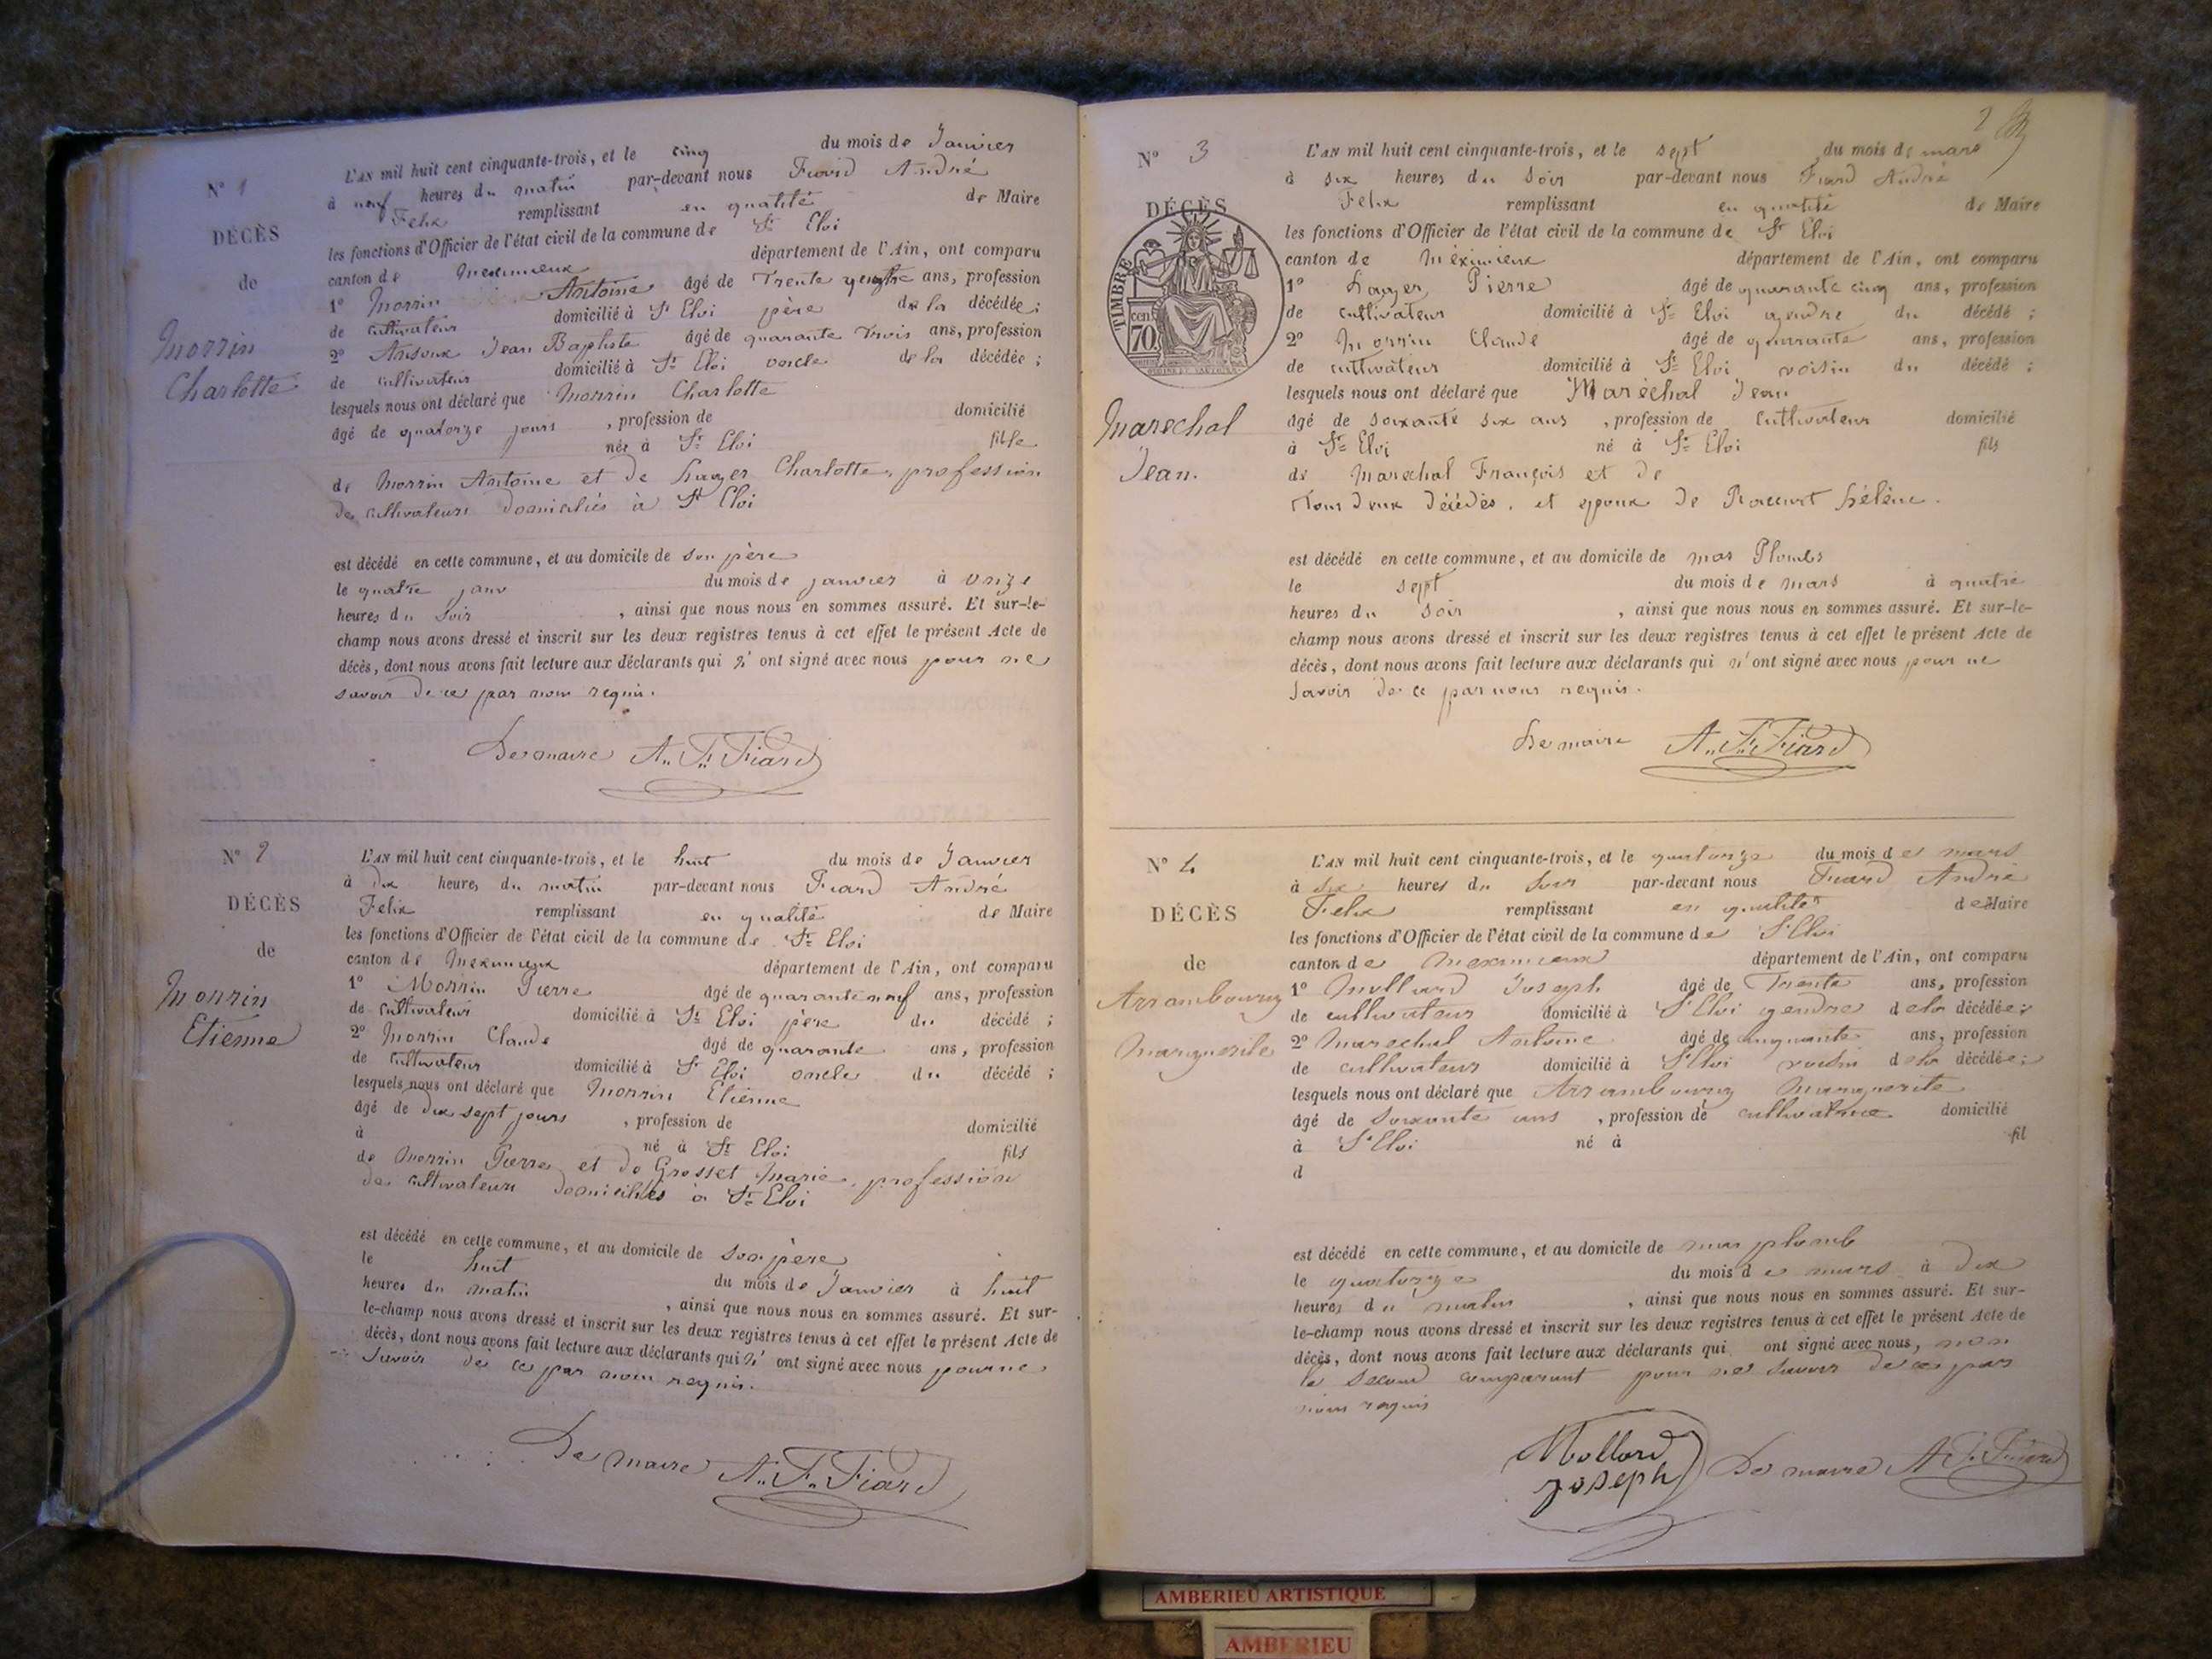 N° 1
DÉCÈS
de
Morrin
Charlotte
L'AN mil huit cent cinquante-trois, et le cinq du mois de Janvier
à neuf heures du matin par-devant nous Fiard André
Felix remplissant en qualité de Maire
les fonctions d'Officier de l'état civil de la commune de St Eloi
canton de Meximieux département de l'Ain, ont comparu
1° Morrin Antoine âgé de Trente quatre ans, profession
de cultivateur domicilié à St Eloi père de la décédée ;
2° Jean Baptiste âgé de quarante trois ans, profession
de cultivateur domicilié à St Eloi oncle de la décédée ;
lesquels nous ont déclaré que Morrin Charlotte
âgé de quatorze jours , profession de domicilié
née à St Eloi fille
de Morrin Antoine et de Charlotte, profession
de cultivateurs domiciliés à St Eloi
est décédé en cette commune, et au domicile de son père
le quatre janv du mois de janvier à onze
heures du soir , ainsi que nous nous en sommes assuré. Et sur-le-
champ nous avons dressé et inscrit sur les deux registres tenus à cet effet le présent Acte de
décès, dont nous avons fait lecture aux déclarants qui n' ont signé avec nous pour ne
savoir de ce par nous requis.
Le maire A. F. Fiard
N° 2
DÉCÈS
de
Morrin
Etienne
L'AN mil huit cent cinquante-trois, et le huit du mois de Janvier
à dix heures du matin par-devant nous Fiard André
Felix remplissant en qualité de Maire
les fonctions d'Officier de l'état civil de la commune de St Eloi
canton de Meximieux département de l'Ain, ont comparu
1° Morrin Pierre âgé de quarante neuf ans, profession
de cultivateur domicilié à St Eloi père du décédé ;
2° Morrin Claude âgé de quarante ans, profession
de cultivateur domicilié à St Eloi oncle du décédé ;
lesquels nous ont déclaré que Morrin Etienne
âgé de dix sept jours , profession de domicilié
à né à St Eloi fils
de Morrin Pierre et de Grosset Marie, profession
de cultivateurs domiciliés à St Eloi
est décédé en cette commune, et au domicile de son père
le huit du mois de Janvier à huit
heures du matin , ainsi que nous nous en sommes assuré. Et sur-
le-champ nous avons dressé et inscrit sur les deux registres tenus à cet effet le présent Acte de
décès, dont nous avons fait lecture aux déclarants qui n' ont signé avec nous pour ne
savoir de ce par nous requis.
Le maire A. F. Fiard
2
N° 3
DÉCÈS
TIMBRE
cen
70
Marechal
Jean.
L'AN mil huit cent cinquante-trois, et le sept du mois de mars
à six heures du soir par-devant nous Fiard André
Felix remplissant en qualité de Maire
les fonctions d'Officier de l'état civil de la commune de St Eloi
canton de Méximieux département de l'Ain, ont comparu
1° Pierre âgé de quarante cinq ans, profession
de cultivateur domicilié à St Eloi gendre du décédé ;
2° Morrin Claude âgé de quarante ans, profession
de cultivateur domicilié à St Eloi voisin du décédé ;
lesquels nous ont déclaré que Maréchal Jean
âgé de soixante six ans , profession de cultivateur domicilié
à St Eloi né à St Eloi fils
de Marechal François et de
tous deux décédés, et époux de Hélène.
est décédé en cette commune, et au domicile de mas Plombs
le sept du mois de mars à quatre
heures du soir , ainsi que nous nous en sommes assuré. Et sur-le-
champ nous avons dressé et inscrit sur les deux registres tenus à cet effet le présent Acte de
décès, dont nous avons fait lecture aux déclarants qui n' ont signé avec nous pour ne
savoir de ce par nous requis.
Le maire A. F. Fiard
N° 4
DÉCÈS
de
Arrambourg
Marguerite
L'AN mil huit cent cinquante-trois, et le quatorze du mois de mars
à six heures du soir par-devant nous Fiard André
Felix remplissant en qualité de Maire
les fonctions d'Officier de l'état civil de la commune de St Eloi
canton de Meximieux département de l'Ain, ont comparu
1° Mollard Joseph âgé de Trente ans, profession
de cultivateur domicilié à St Eloi gendre de la décédée ;
2° Marechal Antoine âgé de cinquante ans, profession
de cultivateur domicilié à St Eloi voisin de la décédée ;
lesquels nous ont déclaré que Arrambourg Marguerite
âgé de soixante ans , profession de cultivatrice domicilié
à St Eloi né à fil
d
est décédé en cette commune, et au domicile de mas plomb
le quatorze du mois de mars à dix
heures du matin , ainsi que nous nous en sommes assuré. Et sur-
le-champ nous avons dressé et inscrit sur les deux registres tenus à cet effet le présent Acte de
décès, dont nous avons fait lecture aux déclarants qui ont signé avec nous, non
le second comparant pour ne savoir de ce par
nous requis
Mollard
Joseph
Le maire A. F. Fiard
AMBERIEU ARTISTIQUE
AMBERIEU